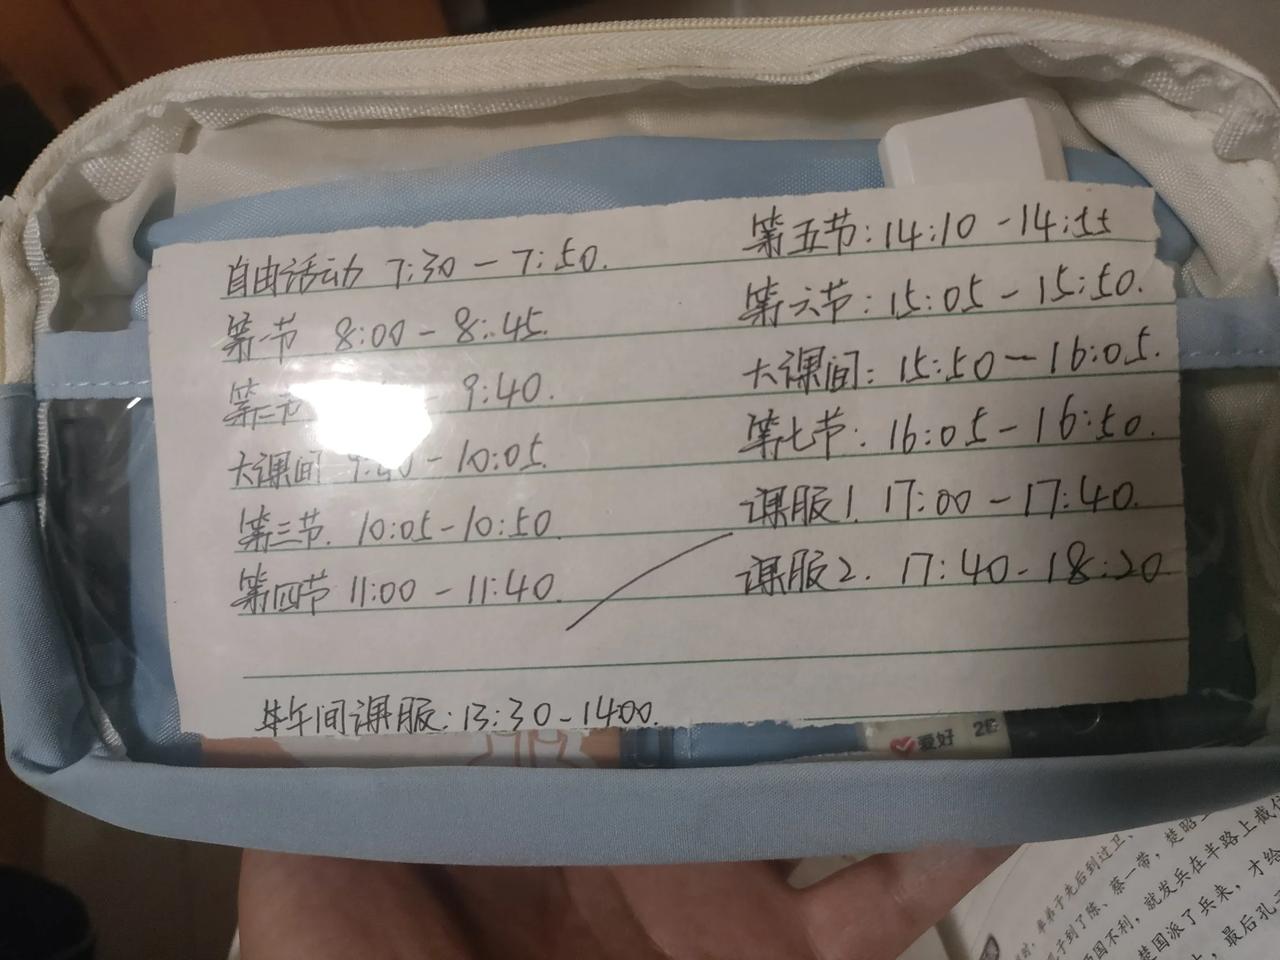 自由活动 7:30 - 7:50.
第一节 8:00 - 8:45.
第二节 - 9:40.
大课间 - 10:05.
第三节. 10:05 - 10:50.
第四节 11:00 - 11:40.
午间课服: 13:30 - 14:00.
第五节: 14:10 - 14:55
第六节: 15:05 - 15:50.
大课间: 15:50 - 16:05.
第七节: 16:05 - 16:50.
课服1. 17:00 - 17:40.
课服2. 17:40 - 18:20
爱好
率弟子先后到过卫、
子到了陈、蔡一带，楚昭
国不利，就发兵在半路上截住
楚国派了兵来，才给
最后孔子